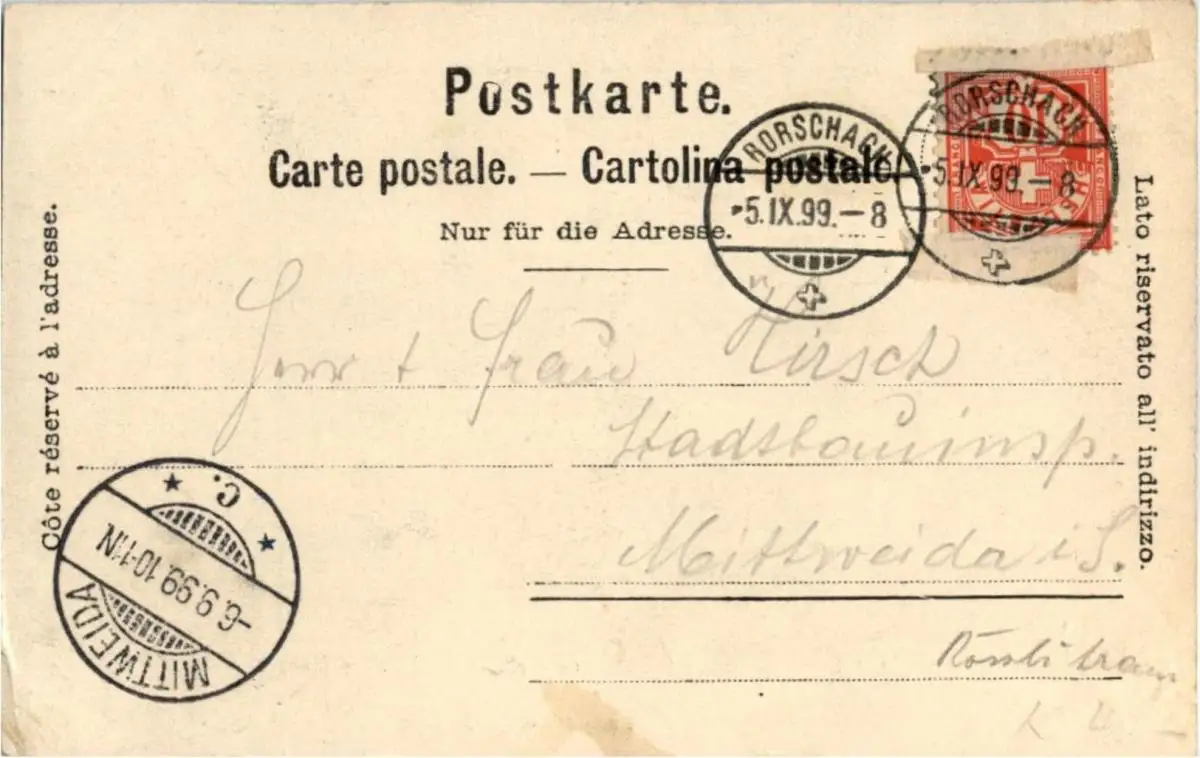 Postkarte.
Carte postale. — Cartolina postale.
Nur für die Adresse.
Côte réservé à l'adresse.
Lato riservato all' indirizzo.
RORSCHACH
5.IX.99.-8
RORSCHACH
5.IX.99.-8
10
Herr + Frau Hirsch
Stadtbauinsp.
Mittweida i S.
MITTWEIDA
-6.9.99.10-11N.
C.